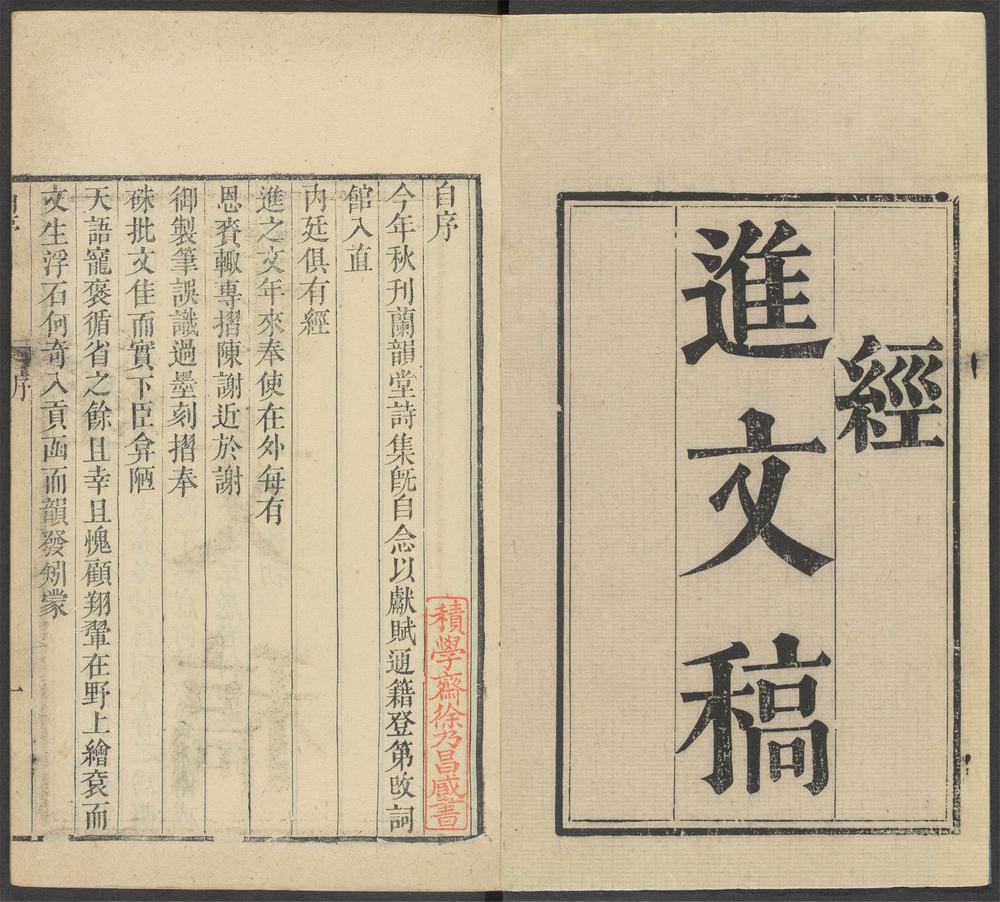 經
進文稿
自序
積學齋徐乃昌藏書
今年秋刊蘭韻堂詩集旣自念以獻賦通籍登第改詞
館入直
内廷俱有經
進之文年來奉使在外每有
恩賚輙專摺陳謝近於謝
御製筆誤識過墨刻摺奉
硃批文佳而實下臣弇陋
天語寵褒循省之餘且幸且愧顧翔翬在野上繪袞而
文生浮石何奇入貢函而韻發矧蒙
序
一